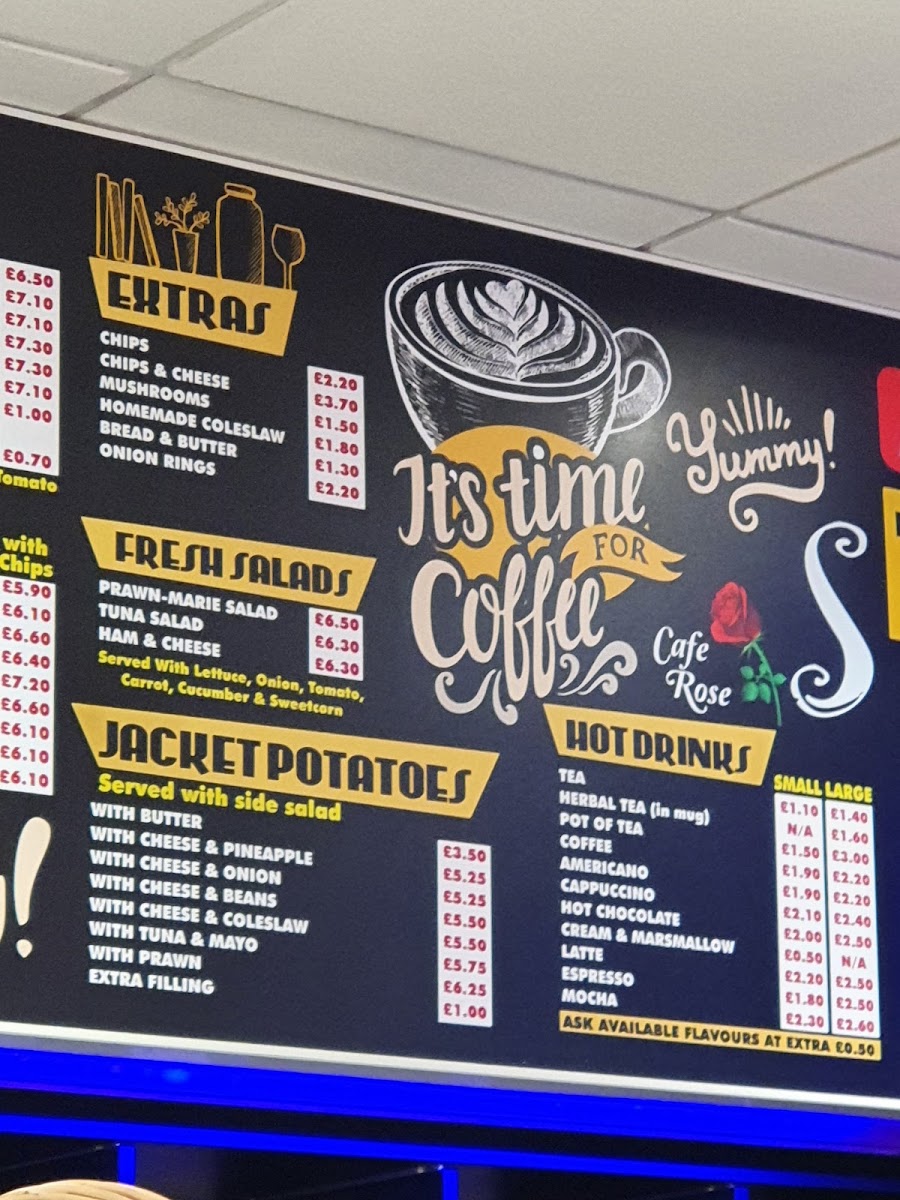 £6.50
£7.10
£7.10
£7.30
£7.30
£7.10
£1.00
£0.70
Tomato
with
Chips
£5.90
£6.10
£6.60
£6.40
£7.20
£6.60
£6.10
£6.10
£6.10
!
EXTRAS
CHIPS £2.20
CHIPS & CHEESE £3.70
MUSHROOMS £1.50
HOMEMADE COLESLAW £1.80
BREAD & BUTTER £1.30
ONION RINGS £2.20
FRESH SALADS
PRAWN-MARIE SALAD £6.50
TUNA SALAD £6.30
HAM & CHEESE £6.30
Served With Lettuce, Onion, Tomato,
Carrot, Cucumber & Sweetcorn
JACKET POTATOES
Served with side salad
WITH BUTTER £3.50
WITH CHEESE & PINEAPPLE £5.25
WITH CHEESE & ONION £5.25
WITH CHEESE & BEANS £5.50
WITH CHEESE & COLESLAW £5.50
WITH TUNA & MAYO £5.75
WITH PRAWN £6.25
EXTRA FILLING £1.00
It's time
FOR
Coffee
Yummy!
Cafe
Rose
S
HOT DRINKS
SMALL LARGE
TEA £1.10 £1.40
HERBAL TEA (in mug) N/A £1.60
POT OF TEA £1.50 £3.00
COFFEE £1.90 £2.20
AMERICANO £1.90 £2.20
CAPPUCCINO £2.10 £2.40
HOT CHOCOLATE £2.00 £2.50
CREAM & MARSMALLOW £0.50 N/A
LATTE £2.20 £2.50
ESPRESSO £1.80 £2.50
MOCHA £2.30 £2.60
ASK AVAILABLE FLAVOURS AT EXTRA £0.50